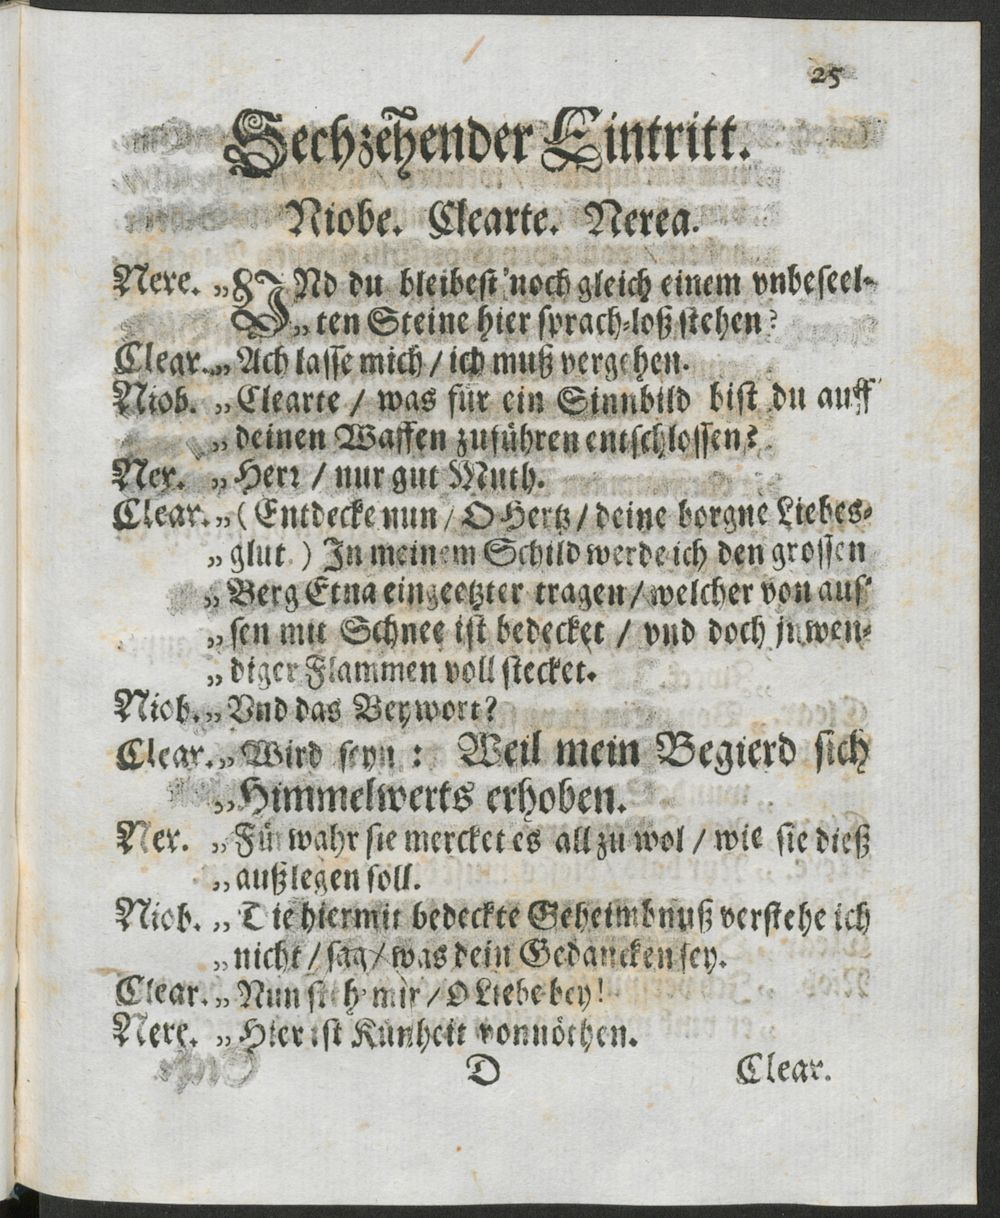 25
Sechzehender Eintritt.
Niobe. Clearte. Nerea.
Nere. „UNd du bleibest noch gleich einem vnbeseel-
„ten Steine hier sprach-loß stehen?
Clear. „Ach lasse mich / ich muß vergehen.
Niob. „Clearte / was für ein Sinnbild bist du auff
„deinen Waffen zuführen entschlossen?
Ner. „Herr / nur gut Muth.
Clear. „(Entdecke nun / O Hertz / deine borgne Liebes-
„glut.) In meinem Schild werde ich den grossen
„Berg Etna eingeetzter tragen / welcher von aus-
„sen mit Schnee ist bedecket / vnd doch jnwen-
„diger Flammen voll stecket.
Niob. „Vnd das Beywort?
Clear. „Wird seyn : Weil mein Begierd sich
„Himmelwerts erhoben.
Ner. „Fürwahr sie mercket es all zu wol / wie sie dieß
„außlegen soll.
Niob. „Die hiermit bedeckte Geheimbnuß verstehe ich
„nicht / sag / was dein Gedancken sey.
Clear. „Nun steh mir / O Liebe bey!
Nere. „Hier ist Künheit vonnöthen.
D Clear.